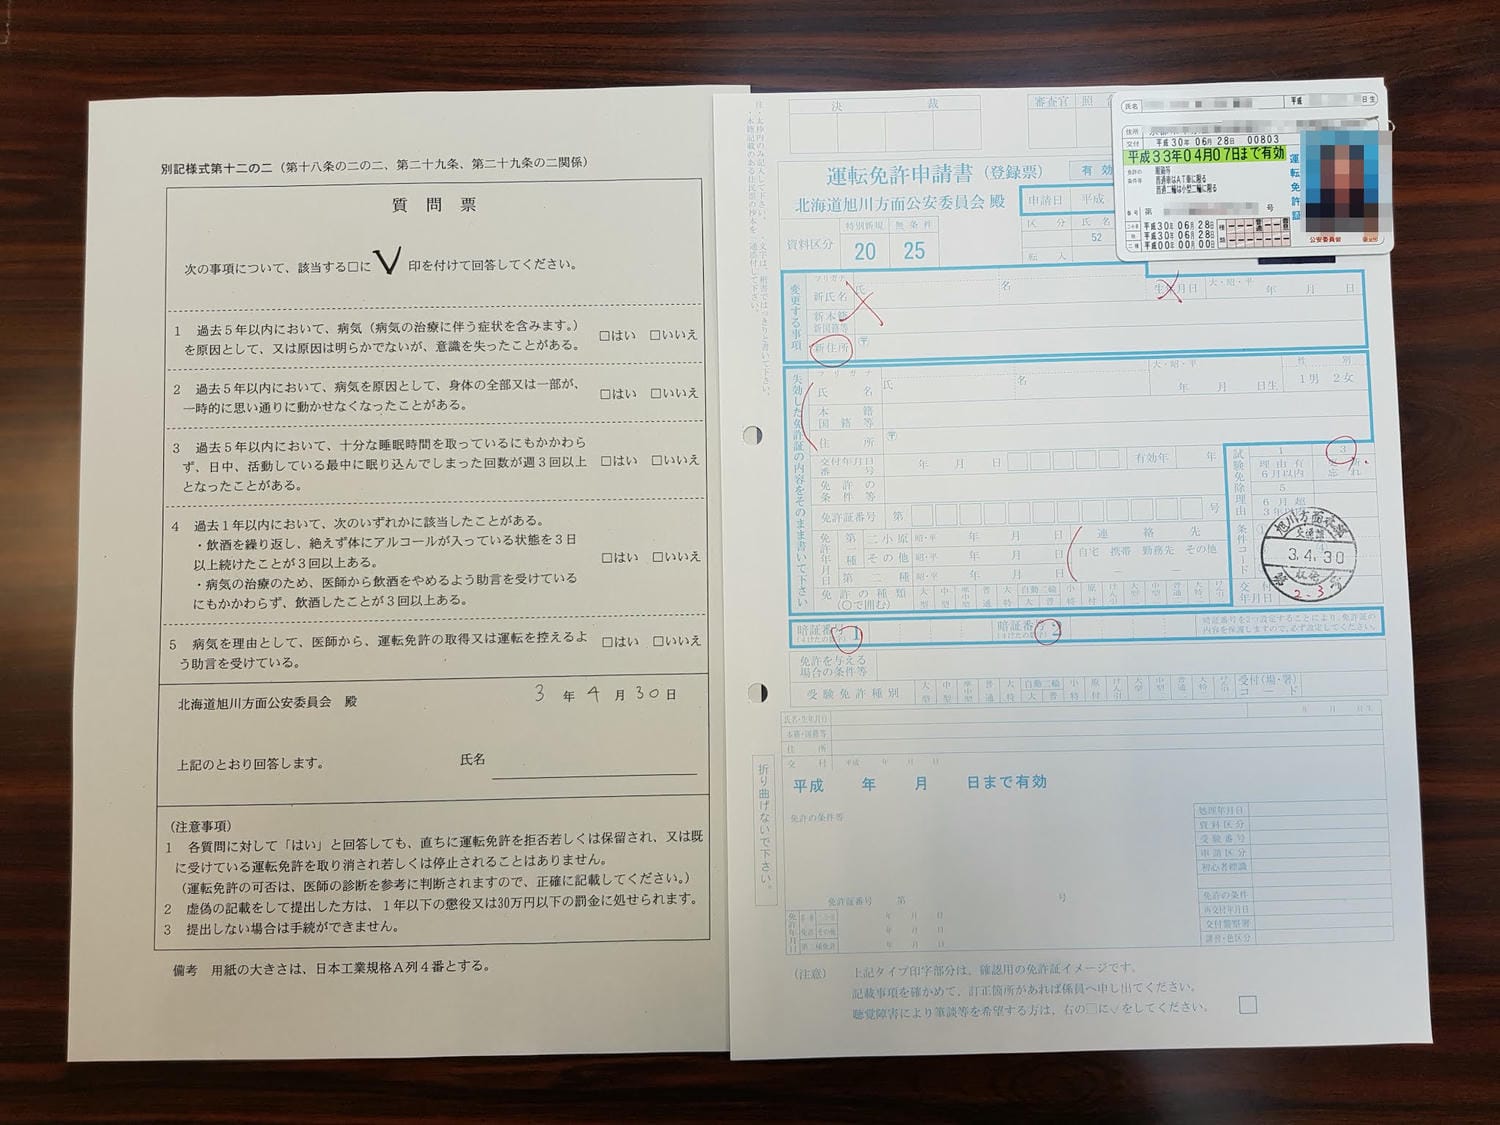 別記様式第十二の二（第十八条の二の二、第二十九条、第二十九条の二関係）
質問票
次の事項について、該当する□に V 印を付けて回答してください。
1 過去５年以内において、病気（病気の治療に伴う症状を含みます。）
を原因として、又は原因は明らかでないが、意識を失ったことがある。
□はい □いいえ
2 過去５年以内において、病気を原因として、身体の全部又は一部が、
一時的に思い通りに動かせなくなったことがある。
□はい □いいえ
3 過去５年以内において、十分な睡眠時間を取っているにもかかわら
ず、日中、活動している最中に眠り込んでしまった回数が週３回以上
となったことがある。
□はい □いいえ
4 過去１年以内において、次のいずれかに該当したことがある。
・飲酒を繰り返し、絶えず体にアルコールが入っている状態を３日
以上続けたことが３回以上ある。
・病気の治療のため、医師から飲酒をやめるよう助言を受けている
にもかかわらず、飲酒したことが３回以上ある。
□はい □いいえ
5 病気を理由として、医師から、運転免許の取得又は運転を控えるよ
う助言を受けている。
□はい □いいえ
北海道旭川方面公安委員会 殿
3 年 4 月 30 日
上記のとおり回答します。
氏名
（注意事項）
1 各質問に対して「はい」と回答しても、直ちに運転免許を拒否若しくは保留され、又は既
に受けている運転免許を取り消され若しくは停止されることはありません。
（運転免許の可否は、医師の診断を参考に判断されますので、正確に記載してください。）
2 虚偽の記載をして提出した方は、１年以下の懲役又は30万円以下の罰金に処せられます。
3 提出しない場合は手続ができません。
備考 用紙の大きさは、日本工業規格Ａ列４番とする。
決 裁
審査官
運転免許申請書（登録票）
有効
北海道旭川方面公安委員会 殿
申請日 平成
資料区分
特別新規 無条件
20 25
区分 氏名
52
転入
氏名 平成 日生
住所
交付 平成30年06月28日 00803
平成33年04月07日まで有効
免許の
条件等
眼鏡等
普通車はAT車に限る
普通二輪は小型二輪に限る
運転免許証
番号 第 号
平成30年06月28日
平成30年06月28日
平成00年00月00日
公安委員会
変更する事項
フリガナ
新氏名
氏 名
生年月日
大・昭・平
年 月 日
新本籍
新国籍等
新住所 〒
失効した免許証の内容をそのまま書いて下さい
フリガナ
氏名
氏 名
大・昭・平
年 月 日生
性別
1男 2女
本籍
国籍等
住所 〒
交付年月日
番号
年 月 日
有効年 年
免許の
条件等
免許証番号 第 号
免許年月日
第一種
二小原 昭・平 年 月 日
その他 昭・平 年 月 日
第二種 昭・平 年 月 日
連絡先
自宅 携帯 勤務先 その他
免許の種類
（○で囲む）
試験免除理由
1
理由有
6月以内
3
更新
忘れ
5
6月超
3年以内
条件コード
交付
年月日
旭川方面本部
交通課
3.4.30
2-3
暗証番号 1
暗証番号 2
暗証番号を2つ設定することにより、免許証の
内容を保護しますので、必ず設定してください。
免許を与える
場合の条件等
受験免許種別
受付(場・署)
コード
氏名・生年月日
年 月 日生
本籍・国籍等
住所
交付 平成 年 月 日
平成 年 月 日まで有効
免許の条件等
処理年月日
資料区分
受験番号
申請区分
初心者標識
免許の条件
再交付年月日
交付警察署
講習・色区分
免許証番号 第 号
免許年月日
年 月 日
年 月 日
年 月 日
折り曲げないで下さい。
（注意） 上記タイプ印字部分は、確認用の免許証イメージです。
記載事項を確かめて、訂正箇所があれば係員へ申し出てください。
聴覚障害により筆談等を希望する方は、右の□に✓をしてください。